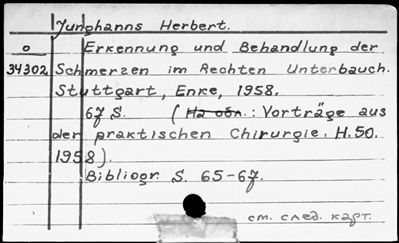 Junghanns Herbert.
o Erkennung und Behandlung der
34302 Schmerzen im Rechten Unterbauch.
Stuttgart, Enke, 1958.
67 S. (На обл.: Vorträge aus
der praktischen Chirurgie. H.50.
1958).
Bibliogr. S. 65-67.
см. след. карт.